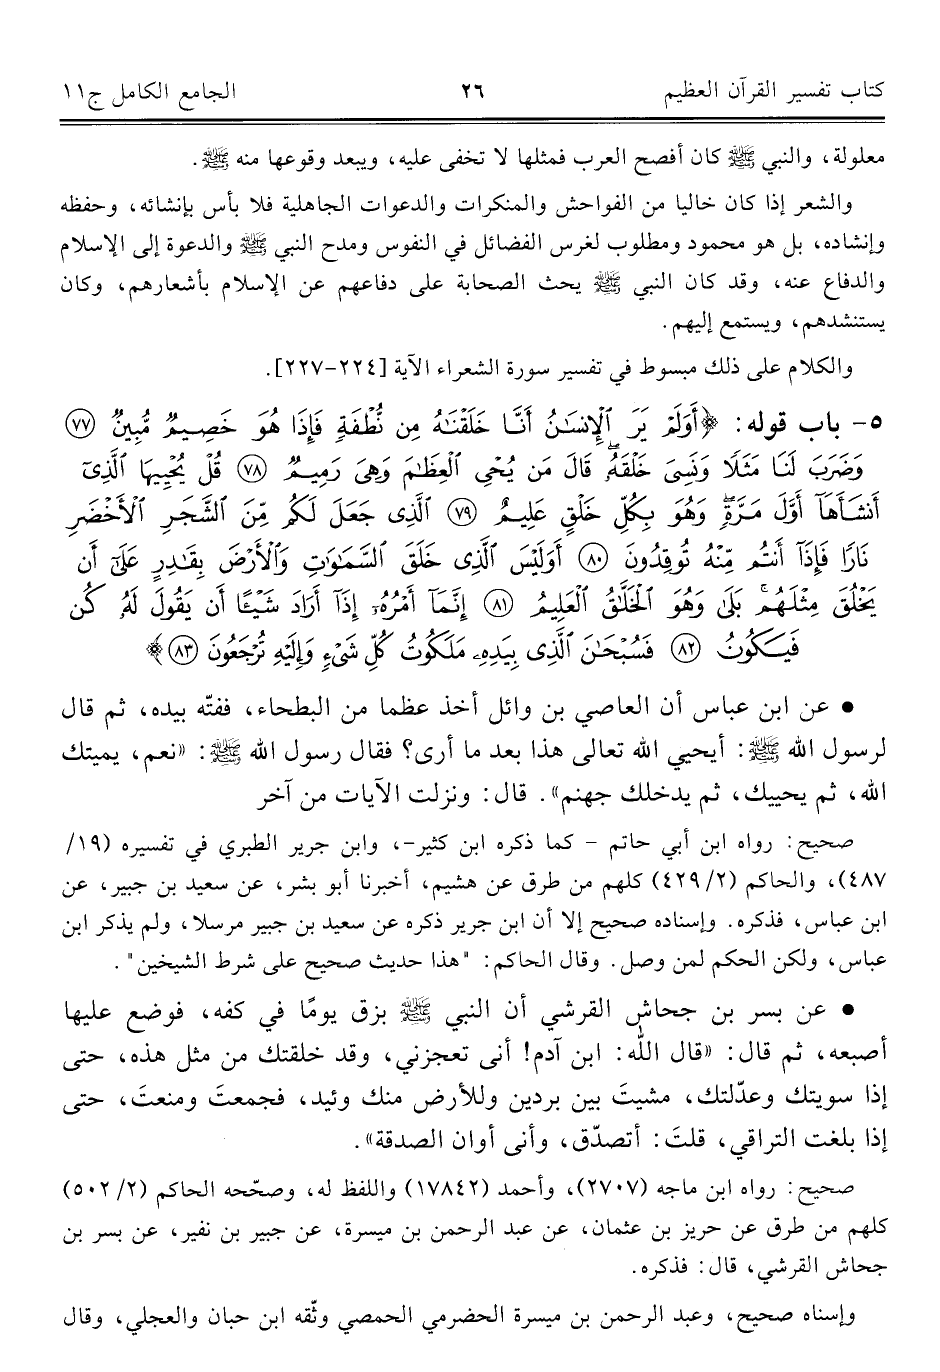 كتاب تفسير القرآن العظيم ٢٦ الجامع الكامل ج١١
معلولة، والنبي ﷺ كان أفصح العرب فمثلها لا تخفى عليه، ويبعد وقوعها منه ﷺ.
والشعر إذا كان خاليا من الفواحش والمنكرات والدعوات الجاهلية فلا بأس بإنشائه، وحفظه
وإنشاده، بل هو محمود ومطلوب لغرس الفضائل في النفوس ومدح النبي ﷺ والدعوة إلى الإسلام
والدفاع عنه، وقد كان النبي ﷺ يحث الصحابة على دفاعهم عن الإسلام بأشعارهم، وكان
يستنشدهم، ويستمع إليهم.
والكلام على ذلك مبسوط في تفسير سورة الشعراء الآية [٢٢٤-٢٢٧].
٥- باب قوله: ﴿أَوَلَمْ يَرَ ٱلْإِنسَٰنُ أَنَّا خَلَقْنَٰهُ مِن نُّطْفَةٍ فَإِذَا هُوَ خَصِيمٌ مُّبِينٌ ٧٧
وَضَرَبَ لَنَا مَثَلًا وَنَسِىَ خَلْقَهُۥ ۖ قَالَ مَن يُحْىِ ٱلْعِظَٰمَ وَهِىَ رَمِيمٌ ٧٨ قُلْ يُحْيِيهَا ٱلَّذِىٓ
أَنشَأَهَآ أَوَّلَ مَرَّةٍ ۖ وَهُوَ بِكُلِّ خَلْقٍ عَلِيمٌ ٧٩ ٱلَّذِى جَعَلَ لَكُم مِّنَ ٱلشَّجَرِ ٱلْأَخْضَرِ
نَارًا فَإِذَآ أَنتُم مِّنْهُ تُوقِدُونَ ٨٠ أَوَلَيْسَ ٱلَّذِى خَلَقَ ٱلسَّمَٰوَٰتِ وَٱلْأَرْضَ بِقَٰدِرٍ عَلَىٰٓ أَن
يَخْلُقَ مِثْلَهُم ۚ بَلَىٰ وَهُوَ ٱلْخَلَّٰقُ ٱلْعَلِيمُ ٨١ إِنَّمَآ أَمْرُهُۥٓ إِذَآ أَرَادَ شَيْـًٔا أَن يَقُولَ لَهُۥ كُن
فَيَكُونُ ٨٢ فَسُبْحَٰنَ ٱلَّذِى بِيَدِهِۦ مَلَكُوتُ كُلِّ شَىْءٍ وَإِلَيْهِ تُرْجَعُونَ ٨٣﴾
• عن ابن عباس أن العاصي بن وائل أخذ عظما من البطحاء، ففتّه بيده، ثم قال
لرسول الله ﷺ: أيحيي الله تعالى هذا بعد ما أرى؟ فقال رسول الله ﷺ: «نعم، يميتك
الله، ثم يحييك، ثم يدخلك جهنم». قال: ونزلت الآيات من آخر
صحيح: رواه ابن أبي حاتم - كما ذكره ابن كثير-، وابن جرير الطبري في تفسيره (١٩/
٤٨٧)، والحاكم (٢/ ٤٢٩) كلهم من طرق عن هشيم، أخبرنا أبو بشر، عن سعيد بن جبير، عن
ابن عباس، فذكره. وإسناده صحيح إلا أن ابن جرير ذكره عن سعيد بن جبير مرسلا، ولم يذكر ابن
عباس، ولكن الحكم لمن وصل. وقال الحاكم: "هذا حديث صحيح على شرط الشيخين".
• عن بسر بن جحاش القرشي أن النبي ﷺ بزق يومًا في كفه، فوضع عليها
أصبعه، ثم قال: «قال الله: ابن آدم! أنى تعجزني، وقد خلقتك من مثل هذه، حتى
إذا سويتك وعدّلتك، مشيتَ بين بردين وللأرض منك وئيد، فجمعتَ ومنعتَ، حتى
إذا بلغت التراقي، قلتَ: أتصدّق، وأنى أوان الصدقة».
صحيح: رواه ابن ماجه (٢٧٠٧)، وأحمد (١٧٨٤٢) واللفظ له، وصحّحه الحاكم (٢/ ٥٠٢)
كلهم من طرق عن حريز بن عثمان، عن عبد الرحمن بن ميسرة، عن جبير بن نفير، عن بسر بن
جحاش القرشي، قال: فذكره.
وإسناه صحيح، وعبد الرحمن بن ميسرة الحضرمي الحمصي وثّقه ابن حبان والعجلي، وقال